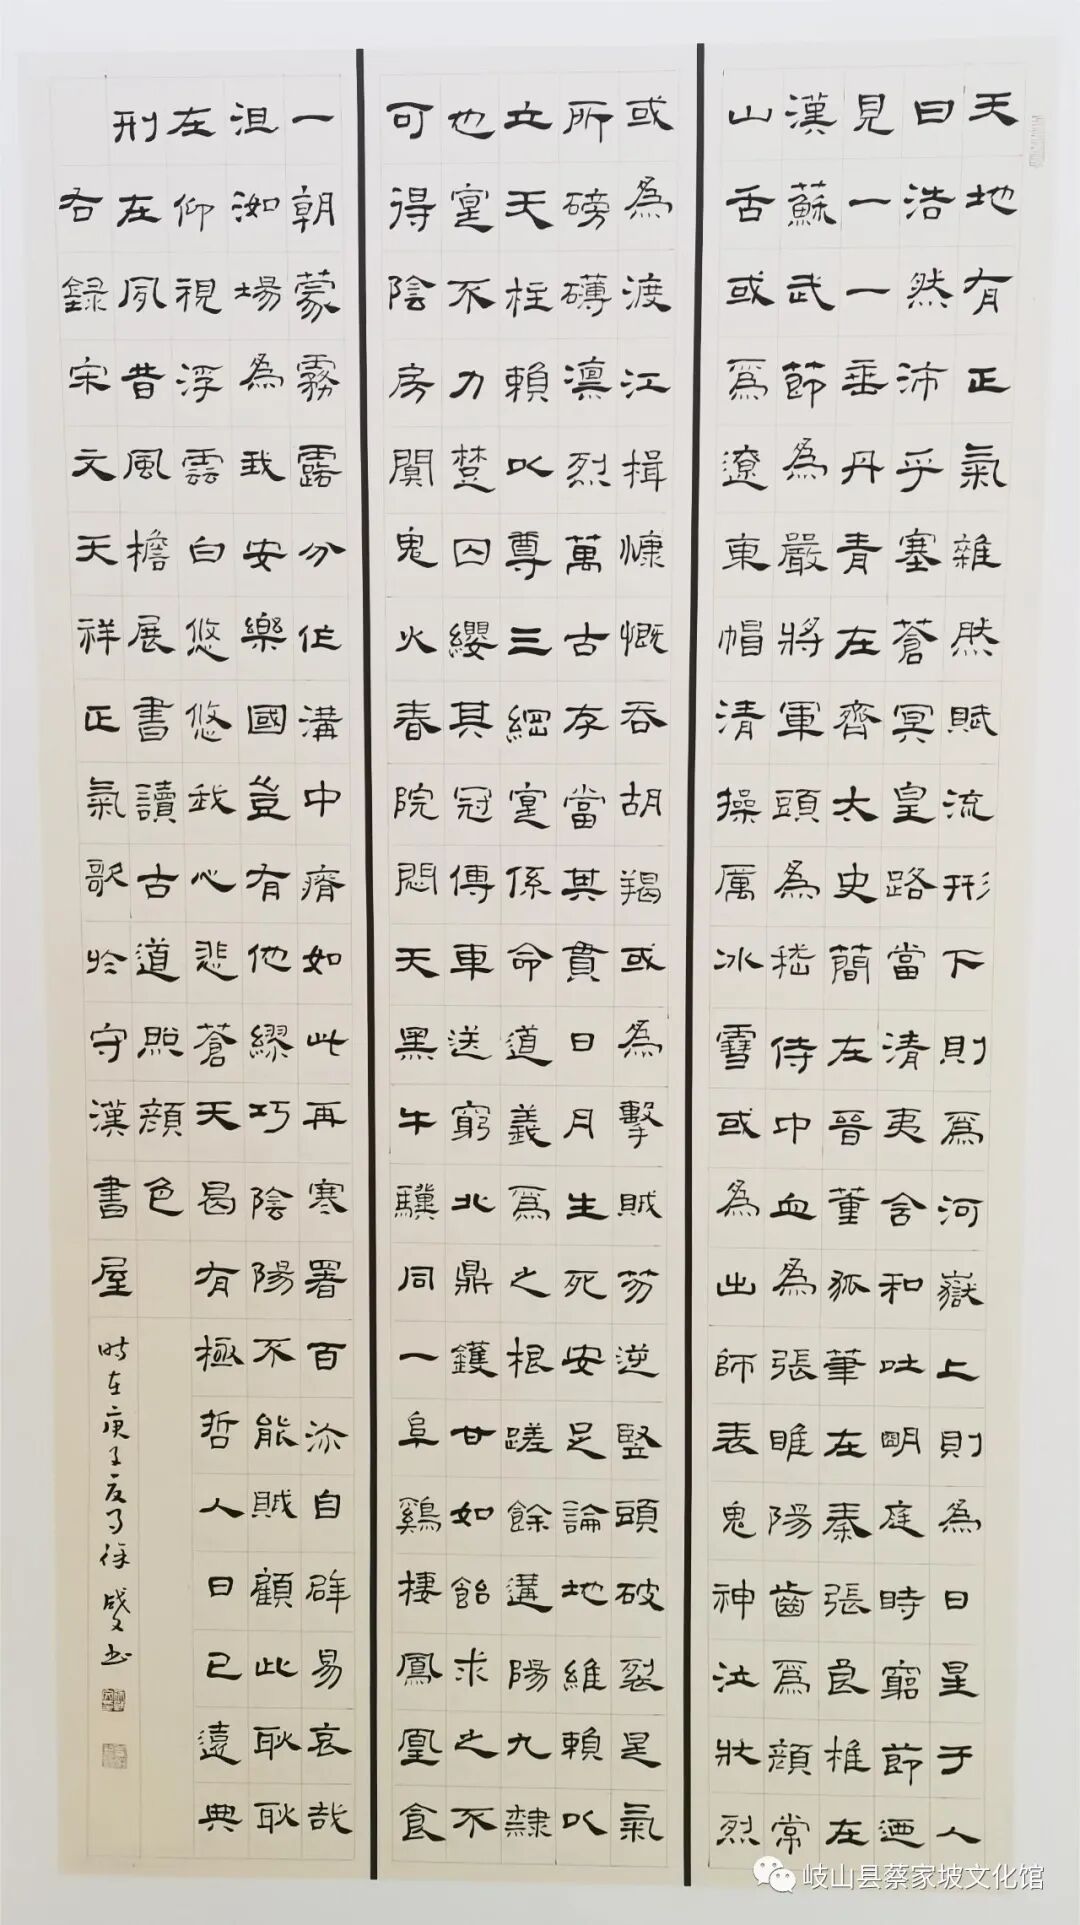 天地有正氣雜然賦流形下則爲河嶽上則為日星于人
曰浩然沛乎塞蒼冥皇路當清夷含和吐明庭時窮節迺
見一一垂丹青在齊太史簡在晉董狐筆在秦張良椎在
漢蘇武節為嚴將軍頭為嵇侍中血為張睢陽齒爲顏常
山舌或爲遼東帽清操厲冰雪或為出師表鬼神泣壯烈
或為渡江楫慷慨吞胡羯或為擊賊笏逆豎頭破裂是氣
所磅礴凛烈萬古存當其貫日月生死安足論地維賴以
立天柱賴以尊三綱寔係命道義爲之根蹉餘遘陽九隸
也寔不力楚囚纓其冠傳車送窮北鼎鑊甘如飴求之不
可得陰房闃鬼火春院悶天黑牛驥同一阜鷄棲鳳凰食
一朝蒙霧露分作溝中瘠如此再寒署百沴自辟易哀哉
沮洳場為我安樂國豈有他繆巧陰陽不能賊顧此耿耿
在仰視浮雲白悠悠我心悲蒼天曷有極哲人日已遠典
刑在夙昔風檐展書讀古道照顏色
右錄宋文天祥正氣歌於守漢書屋
時在庚子夏月徐
岐山县蔡家坡文化馆